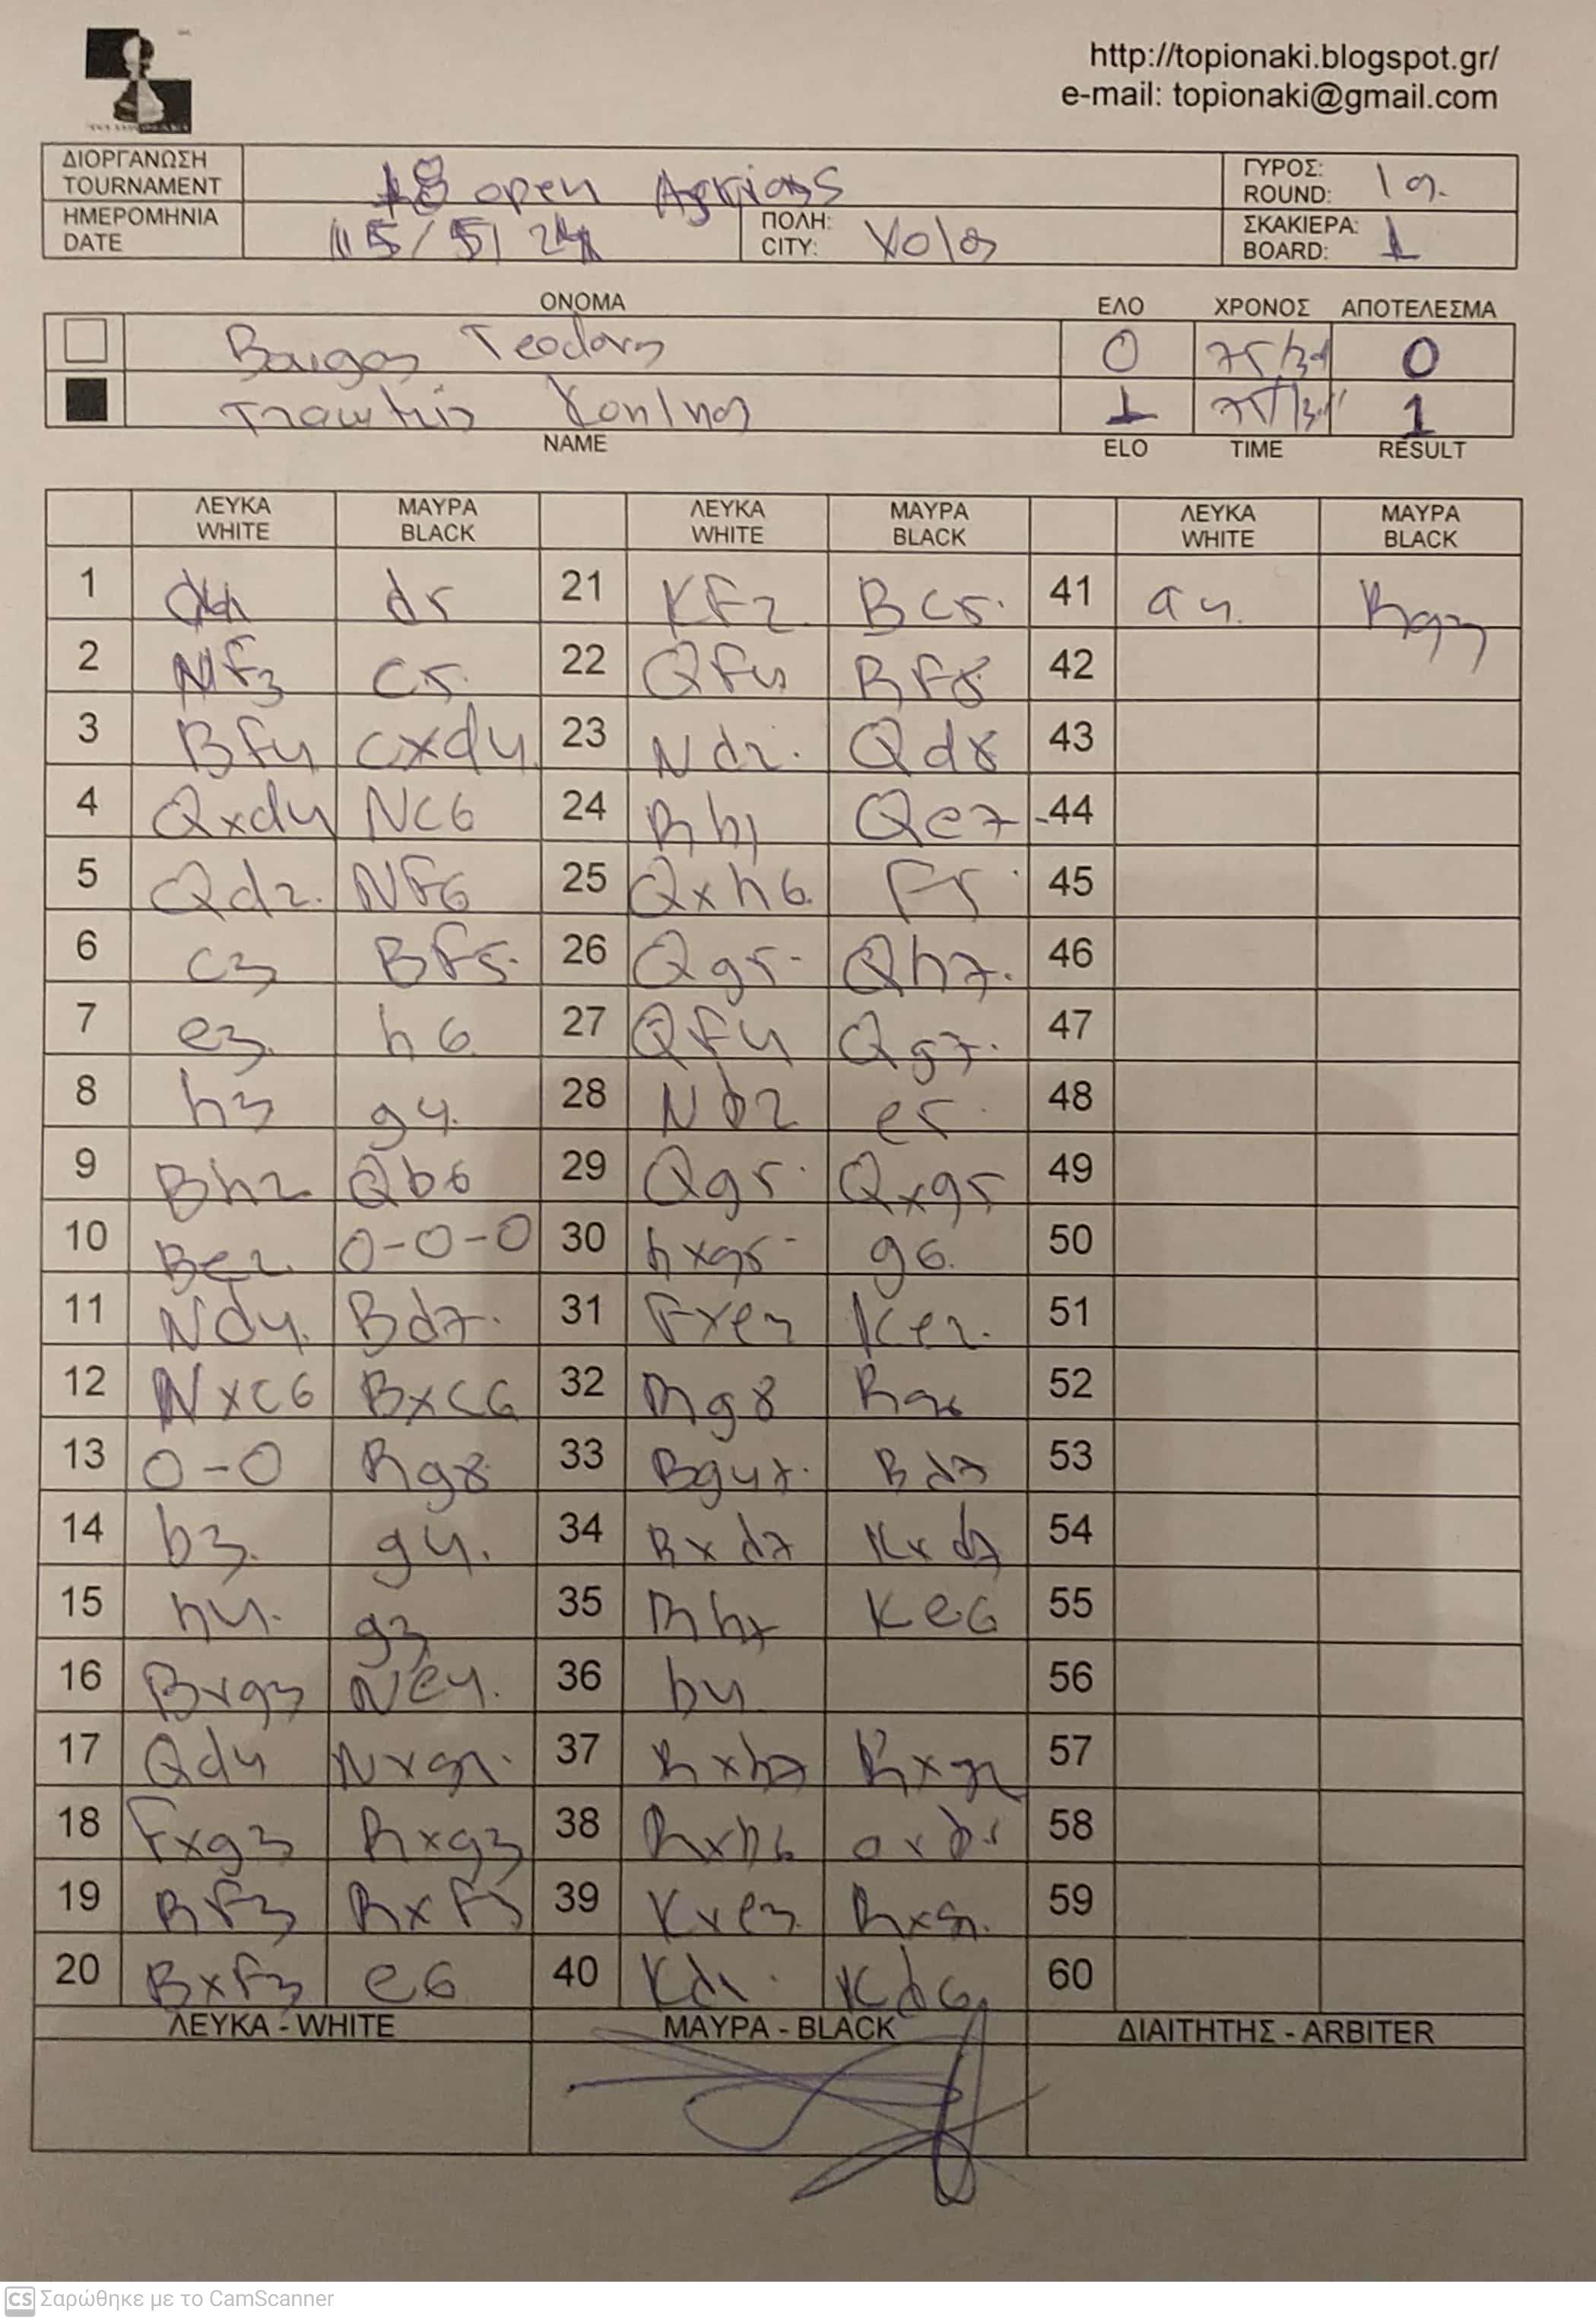 http://topionaki.blogspot.gr/
e-mail: topionaki@gmail.com
ΔΙΟΡΓΑΝΩΣΗ TOURNAMENT 18 open ΓΥΡΟΣ: ROUND: 1
ΗΜΕΡΟΜΗΝΙΑ DATE 15/5/24 ΠΟΛΗ: CITY: ΣΚΑΚΙΕΡΑ: BOARD: 1
ΟΝΟΜΑ ΕΛΟ ΧΡΟΝΟΣ ΑΠΟΤΕΛΕΣΜΑ
0 0
1 1
NAME ELO TIME RESULT
ΛΕΥΚΑ ΜΑΥΡΑ ΛΕΥΚΑ ΜΑΥΡΑ ΛΕΥΚΑ ΜΑΥΡΑ
WHITE BLACK WHITE BLACK WHITE BLACK
1 d4 d5 21 KF2 Bc5. 41 a4. Rg3
2 NF3 c5. 22 QF4 RF8 42
3 Bf4 cxd4. 23 Nd2. Qd8 43
4 Qxd4 Nc6 24 Rh1 Qe7 44
5 Qd2. NF6 25 Qxh6. F5 45
6 c3 BF5. 26 Qg5. Qh7. 46
7 e3. h6 27 QF4 Qg7. 47
8 h3 g4. 28 e5. 48
9 Bh2 Qb6 29 Qg5. Qxg5 49
10 Be2. 0-0-0 30 hxg5 g6. 50
11 Nd4. Bd7. 31 Fxe3 Ke2. 51
12 Nxc6 Bxc6 32 Rg8 52
13 0-0 Rg8 33 Bd7 53
14 b3. g4. 34 Bxd7 Kxd7 54
15 h4. g3 35 Rh7 Ke6 55
16 Bxg3 Ne4. 36 b4 56
17 Qd4 Nxg3. 37 Rxb7 57
18 Fxg3 Rxg3 38 Rxh6 58
19 RF3 RxF3 39 Kxe3. 59
20 BxF3 e6 40 Kd6 60
ΛΕΥΚΑ - WHITE ΜΑΥΡΑ - BLACK ΔΙΑΙΤΗΤΗΣ - ARBITER
CS Σαρώθηκε με το CamScanner